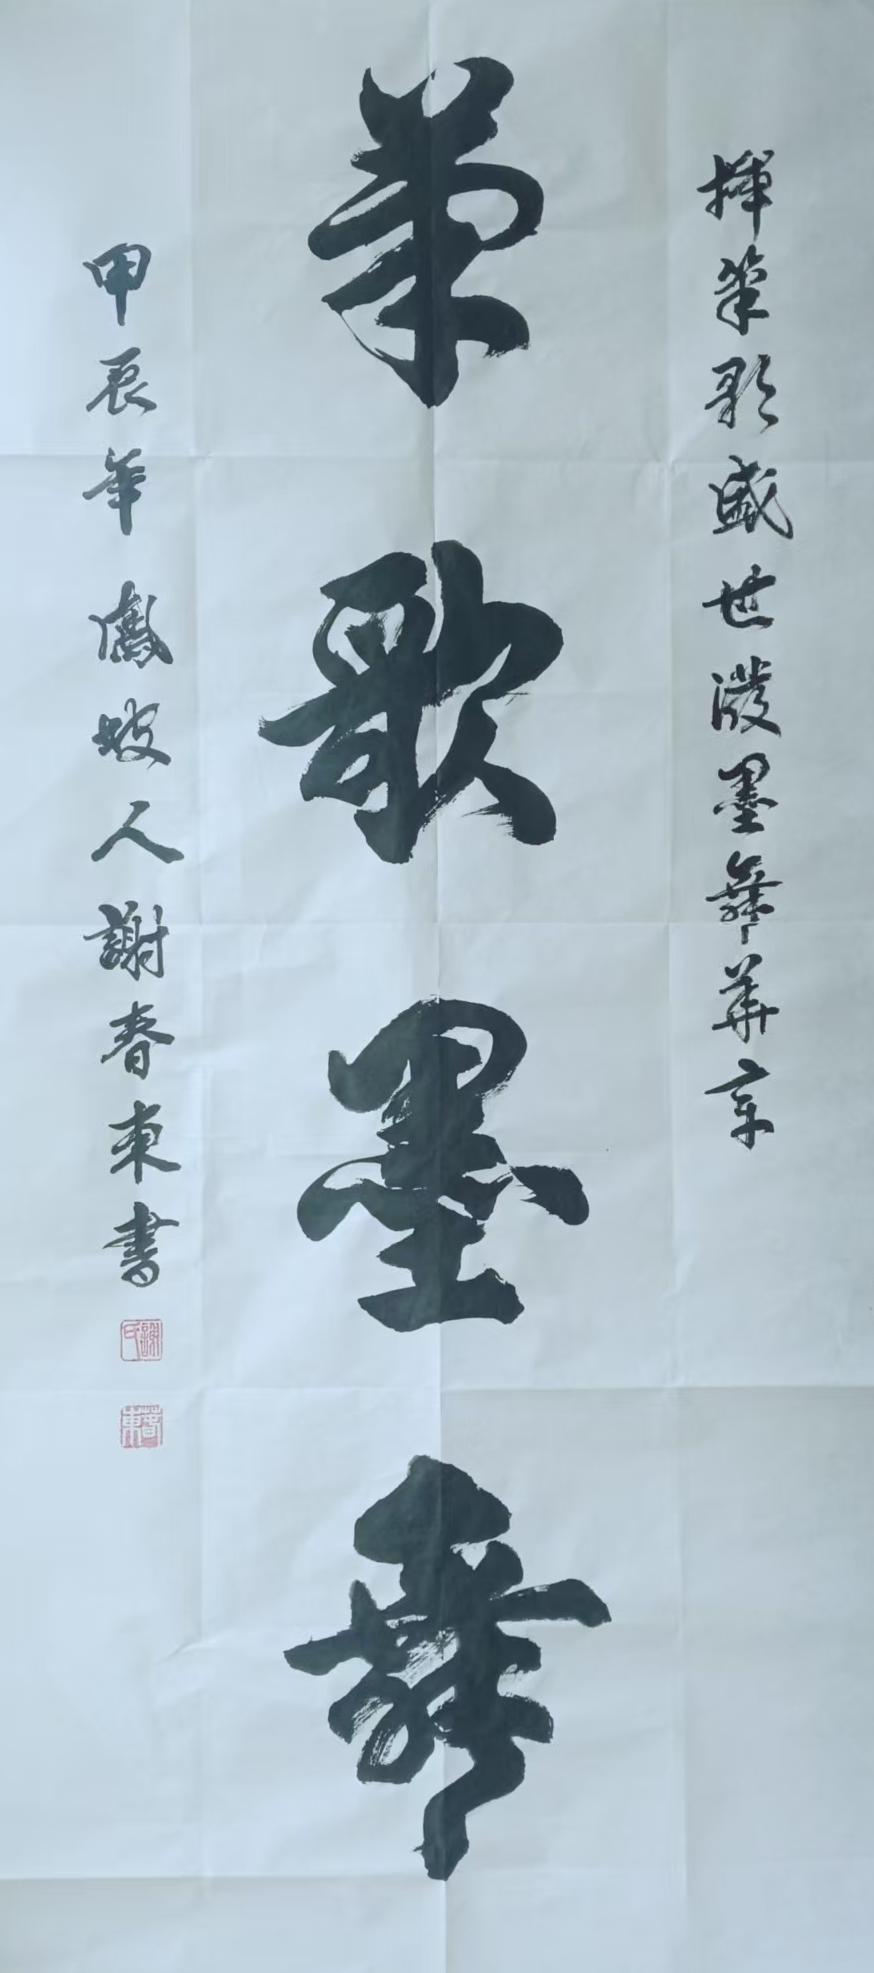 揮筆歌盛世潑墨舞華章
筆歌墨舞
甲辰年鳳坡人謝春東書
謝氏
春東